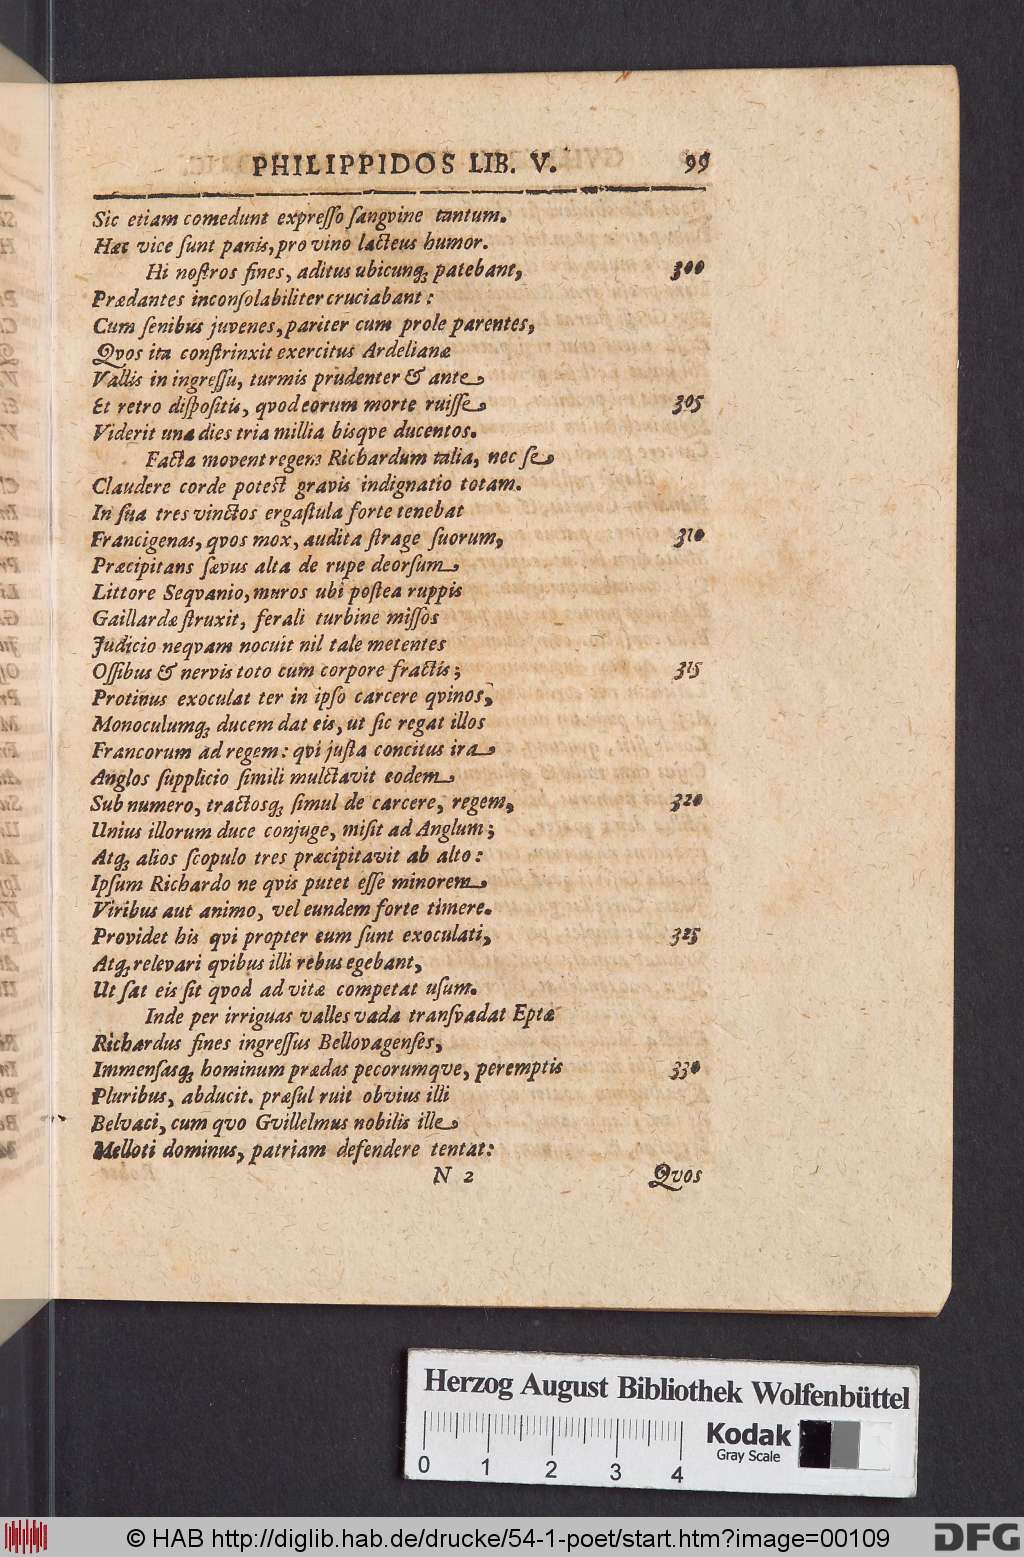 PHILIPPIDOS LIB. V. 99
Sic etiam comedunt expreſſo ſangvine tantum.
Hæc vice ſunt panis, pro vino lacteus humor.
Hi noſtros fines, aditus ubicunq; patebant, 300
Prædantes inconſolabiliter cruciabant:
Cum ſenibus juvenes, pariter cum prole parentes,
Qvos ita conſtrinxit exercitus Ardelianæ
Vallis in ingreſſu, turmis prudenter & ante
Et retro diſpoſitis, qvod eorum morte ruiſſe 305
Viderit una dies tria millia bisqve ducentos.
Facta movent regem Richardum talia, nec ſe
Claudere corde poteſt gravis indignatio totam.
In ſua tres vinctos ergaſtula forte tenebat
Francigenas, qvos mox, audita ſtrage ſuorum, 310
Præcipitans ſævus alta de rupe deorſum
Littore Seqvanio, muros ubi poſtea ruppis
Gaillardæ ſtruxit, ferali turbine miſſos
Judicio neqvam nocuit nil tale metentes
Oſſibus & nervis toto cum corpore fractis; 315
Protinus exoculat ter in ipſo carcere qvinos,
Monoculumq; ducem dat eis, ut ſic regat illos
Francorum ad regem: qvi juſta concitus ira
Anglos ſupplicio ſimili mulctavit eodem
Sub numero, tractosq; ſimul de carcere, regem, 320
Unius illorum duce conjuge, miſit ad Anglum;
Atq; alios ſcopulo tres præcipitavit ab alto:
Ipſum Richardo ne qvis putet eſſe minorem
Viribus aut animo, vel eundem forte timere.
Providet his qvi propter eum ſunt exoculati, 325
Atq; relevari qvibus illi rebus egebant,
Ut ſat eis ſit qvod ad vitæ competat uſum.
Inde per irriguas valles vada tranſvadat Eptæ
Richardus fines ingreſſus Bellovagenſes,
Immenſasq; hominum prædas pecorumqve, peremptis 330
Pluribus, abducit. præſul ruit obvius illi
Belvaci, cum qvo Gvillelmus nobilis ille
Melloti dominus, patriam defendere tentat:
N 2 Qvos
Herzog August Bibliothek Wolfenbüttel
0 1 2 3 4
Kodak
Gray Scale
© HAB http://diglib.hab.de/drucke/54-1-poet/start.htm?image=00109
DFG